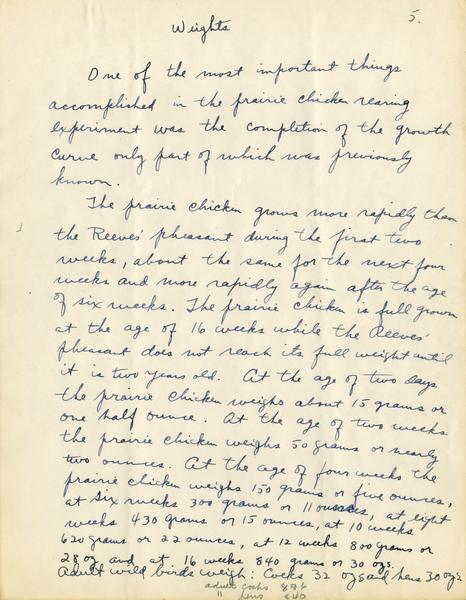 5.
Weights
One of the most important things
accomplished in the prairie chicken rearing
experiment was the completion of the growth
curve only part of which was previously
known.
The prairie chicken grows more rapidly than
the Reeves' pheasant during the first two
weeks, about the same for the next four
weeks and more rapidly again after the age
of six weeks. The prairie chicken is full grown
at the age of 16 weeks while the Reeves'
pheasant does not reach its full weight until
it is two years old. At the age of two days
the prairie chicken weighs about 15 grams or
one half ounce. At the age of two weeks
the prairie chicken weighs 50 grams or nearly
two ounces. At the age of four weeks the
prairie chicken weighs 150 grams or five ounces,
at six weeks 300 grams or 11 ounces, at eight
weeks 430 grams or 15 ounces, at 10 weeks
620 grams or 22 ounces, at 12 weeks 800 grams or
28 oz and at 16 weeks 840 grams or 30 ozs.
Adult wild birds weigh: Cocks 32 ozs and hens 30 ozs.
adult cocks 896
" hens 840